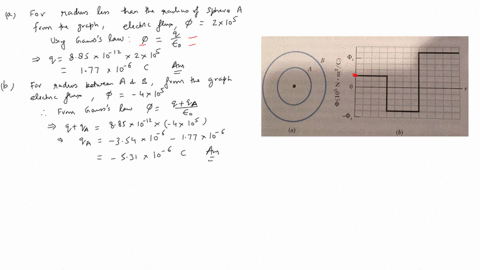 (a) For radius less than the radius of sphere A
from the graph, electric flux, ϕ = 2×10⁵
Using Gauss's law: ϕ = q/ε₀
⇒ q = 8.85 × 10⁻¹² × 2 × 10⁵
= 1.77 × 10⁻⁶ C Ans
(b) For radius between A & B, from the graph
electric flux, ϕ = -4×10⁵
∴ From Gauss's law ϕ = q+qA/ε₀
⇒ q+qA = 8.85 × 10⁻¹² × (-4×10⁵)
⇒ qA = -3.54 × 10⁻⁶ - 1.77 × 10⁻⁶
= -5.31 × 10⁻⁶ C Ans
A
B
(a)
Φ (10⁵ N·m²/C)
Φs
0
-Φs
r
(b)